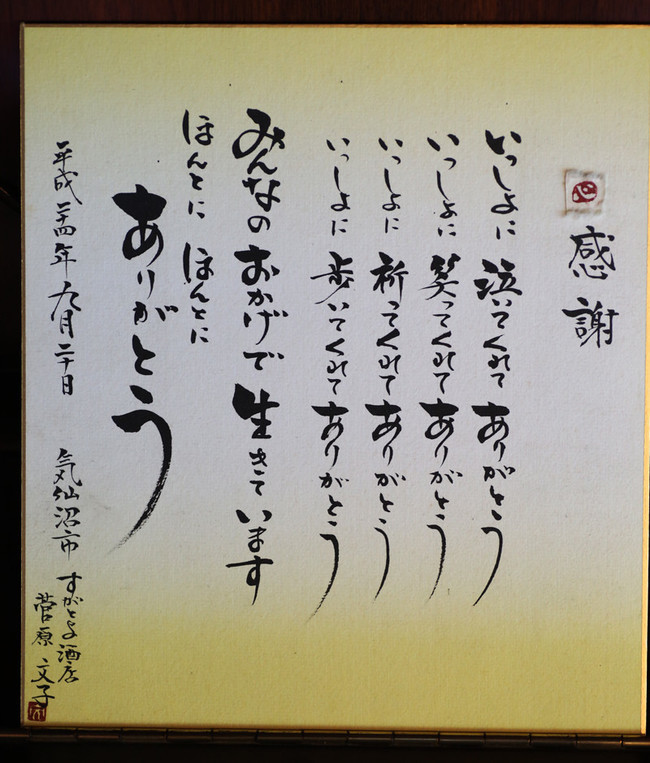 感謝
いっしょに 泣いてくれて ありがとう
いっしょに 笑ってくれて ありがとう
いっしょに 祈ってくれて ありがとう
いっしょに 歩いてくれて ありがとう
みんなの おかげで 生きています
ほんとに ほんとに
ありがとう
平成二十四年 九月 二十日
気仙沼市 すがとよ酒店
菅原 文子